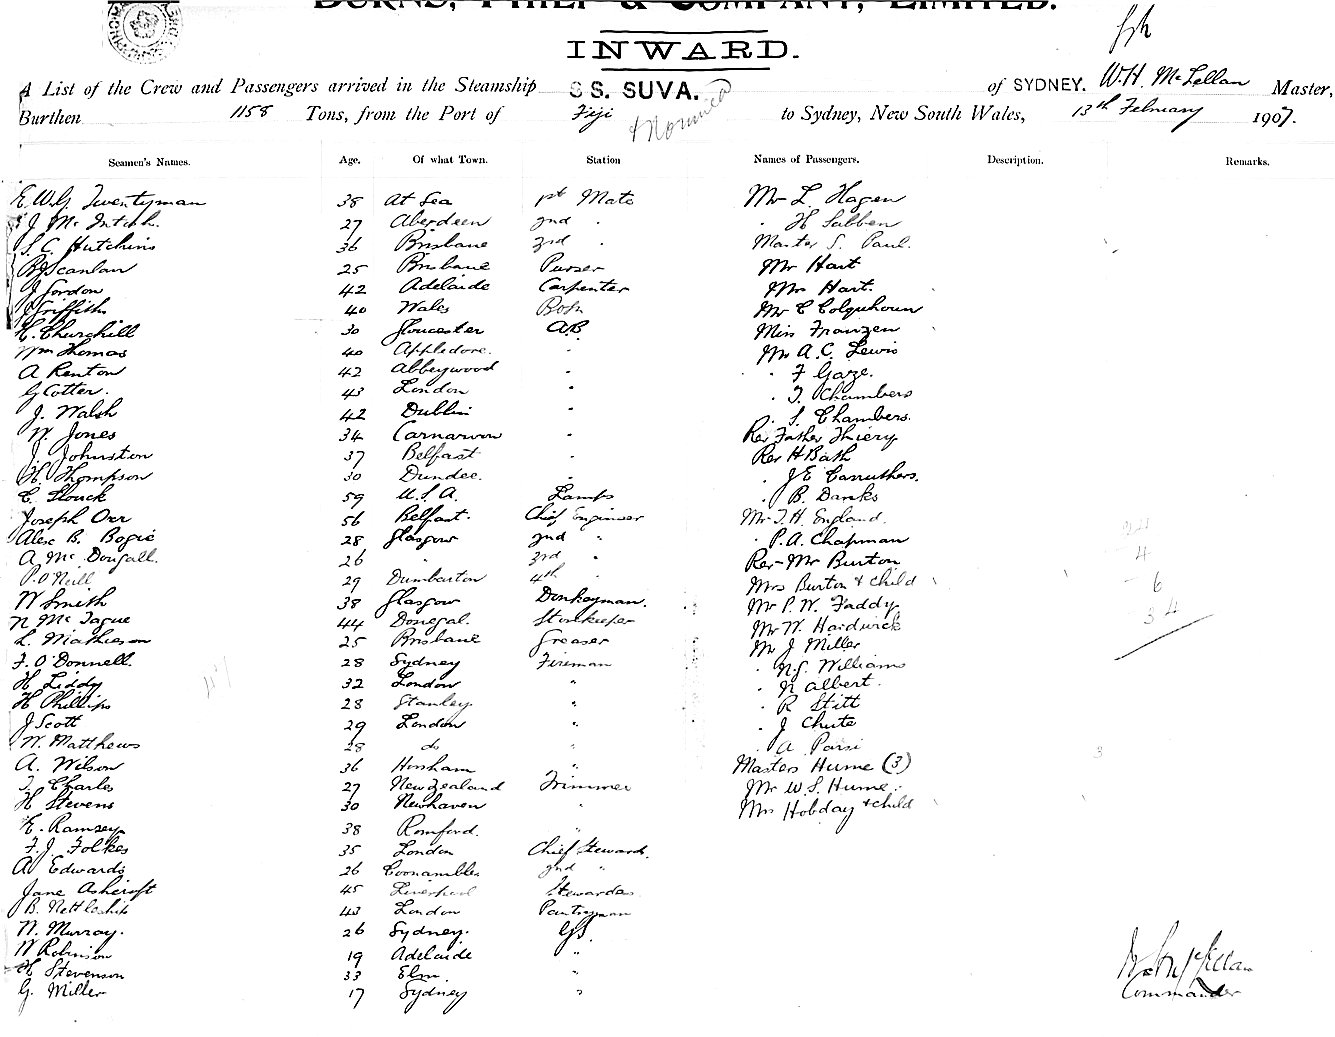 BURNS, PHILP & COMPANY, LIMITED.
INWARD.
A List of the Crew and Passengers arrived in the Steamship SS. SUVA. of SYDNEY. W.H. McLellan Master,
Burthen 1158 Tons, from the Port of Fiji & Noumea to Sydney, New South Wales, 13th February 1907.
Seamen's Names. Age. Of what Town. Station Names of Passengers. Description. Remarks.
E.W.G. Twentyman 38 At Sea 1st Mate Mr L. Hagen
J Mc Intosh. 27 Aberdeen 2nd " H Sabben
S.C. Hutchins 36 Brisbane 3rd " Master S. Paul.
Scanlan 25 Brisbane Purser Mr Hart
J Gordon 42 Adelaide Carpenter Mrs Hart.
J Griffith 40 Wales Bosn Mr C Colquhoun
H. Churchill 30 Gloucester A.B. Miss Franzen
Wm Thomas 40 Appledore. " Mr A.C. Lewis
A Renton 42 Abbeywood " " F Gaze.
G Cotter. 43 London " " T. Chambers
J. Walsh 42 Dublin " " S. Chambers.
W. Jones 34 Carnarvon " Rev Father Thiery
J. Johnston 37 Belfast " Rev H Bath
H. Thompson 30 Dundee. " J E Carruthers.
C. Stouck 59 U.S.A. Lamps " B. Danks
Joseph Orr 56 Belfast. Chief Engineer Mr T.H. England.
Alex B. Bogie 28 Glasgow 2nd " " P.A. Chapman
A Mc Dougall. 26 " 3rd " Rev Mr Burton
P. O'Neill 29 Dumbarton 4th " Mrs Burton & child
W Smith 38 Glasgow Donkeyman. Mr P.W. Faddy
N Mc Tague 44 Donegal. Storekeeper Mr W. Hardwick
L. Mathieson 25 Brisbane Greaser Mr J Miller
F. O'Donnell. 28 Sydney Fireman " N.G. Williams
H Liddy 32 London " " N Albert.
H Phillips 28 Stanley " " R Stitt
J Scott 29 London " " J Chute
W. Matthews 28 do " " A Parsi
A. Wilson 36 Horsham " Masters Hume (3)
T. Charles 27 New Zealand Trimmer Mr W.S. Hume.
H Stevens 30 Newhaven " Mrs Hobday & child
E. Ramsey 38 Romford. "
F.J. Folkes 35 London Chief Steward.
A Edwards 26 Coonamble 2nd "
Jane Ashcroft 45 Liverpool Stewardess
B. Nettleship 43 London Pantryman
W. Murray. 26 Sydney. G.S.
W Robinson 19 Adelaide "
H Stevenson 33 Elm "
G. Miller 17 Sydney "
24
4
6
34
3
W H McLellan
Commander